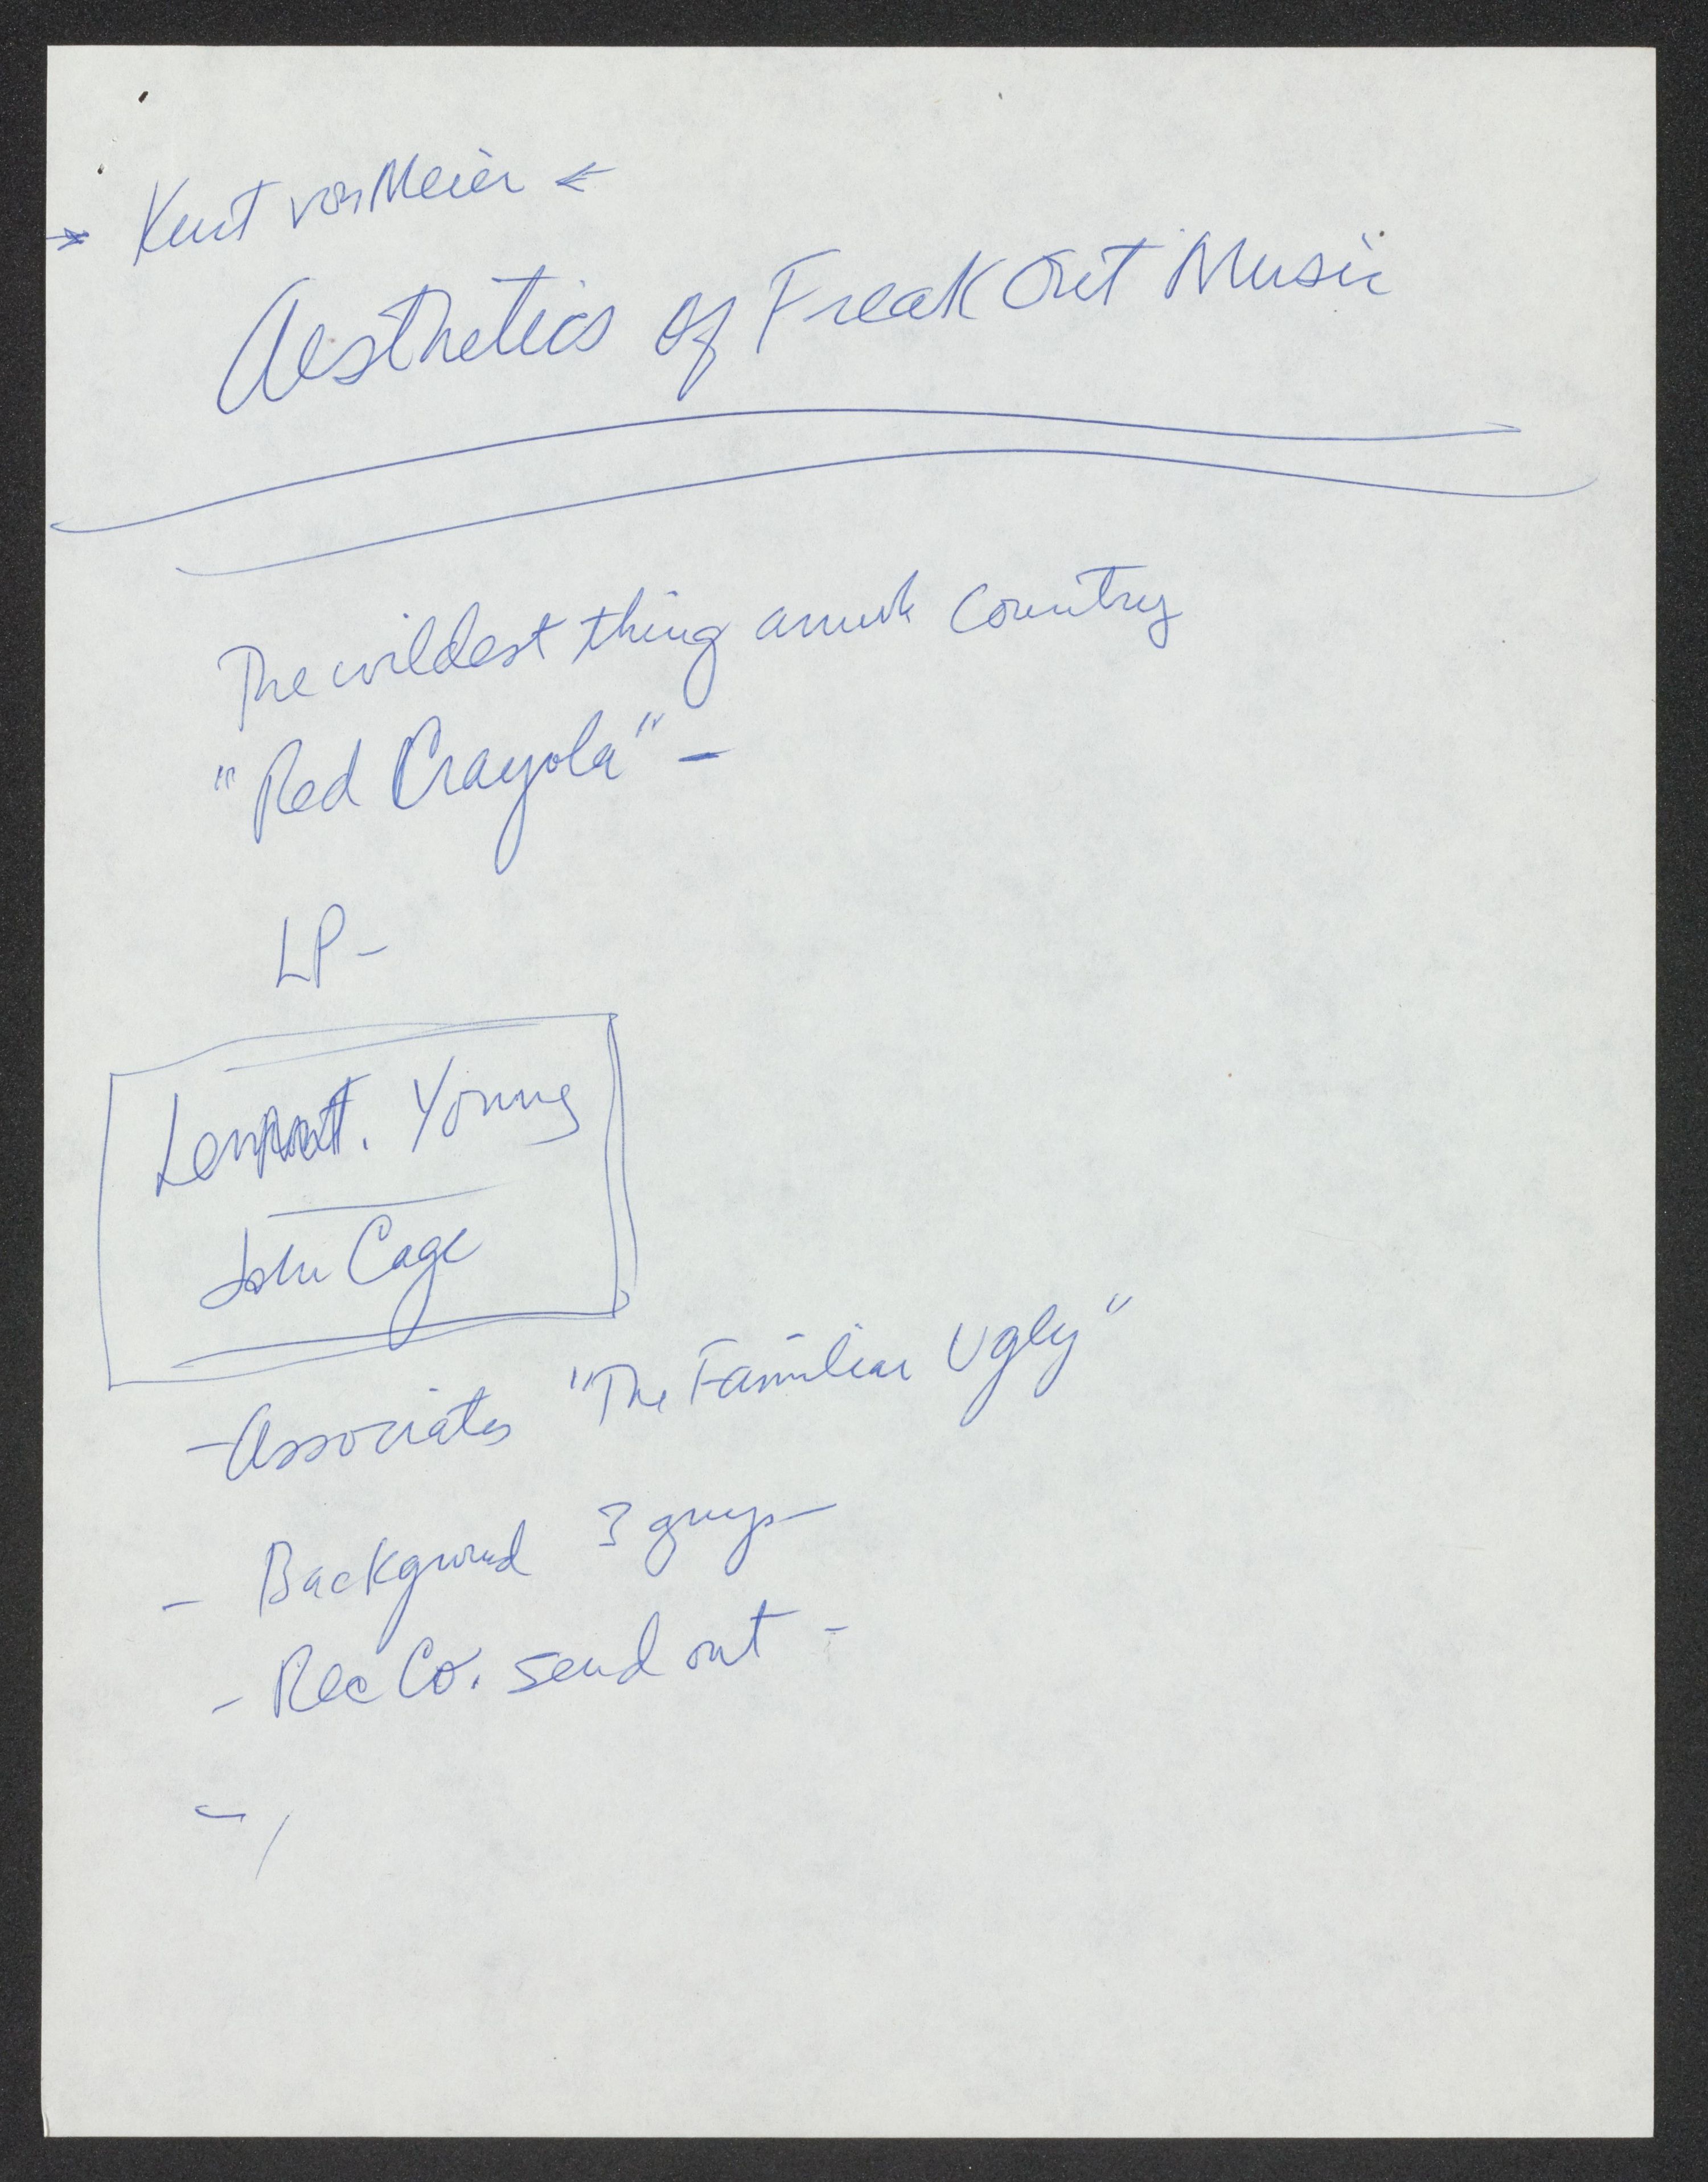 → Kurt von Meier ←
Aesthetics of Freak Out Music
The wildest thing country
"Red Crayola" –
LP –
Young
John Cage
– Associates "The Familiar Ugly"
– Background 3 guys –
– Rec Co. send out –
–